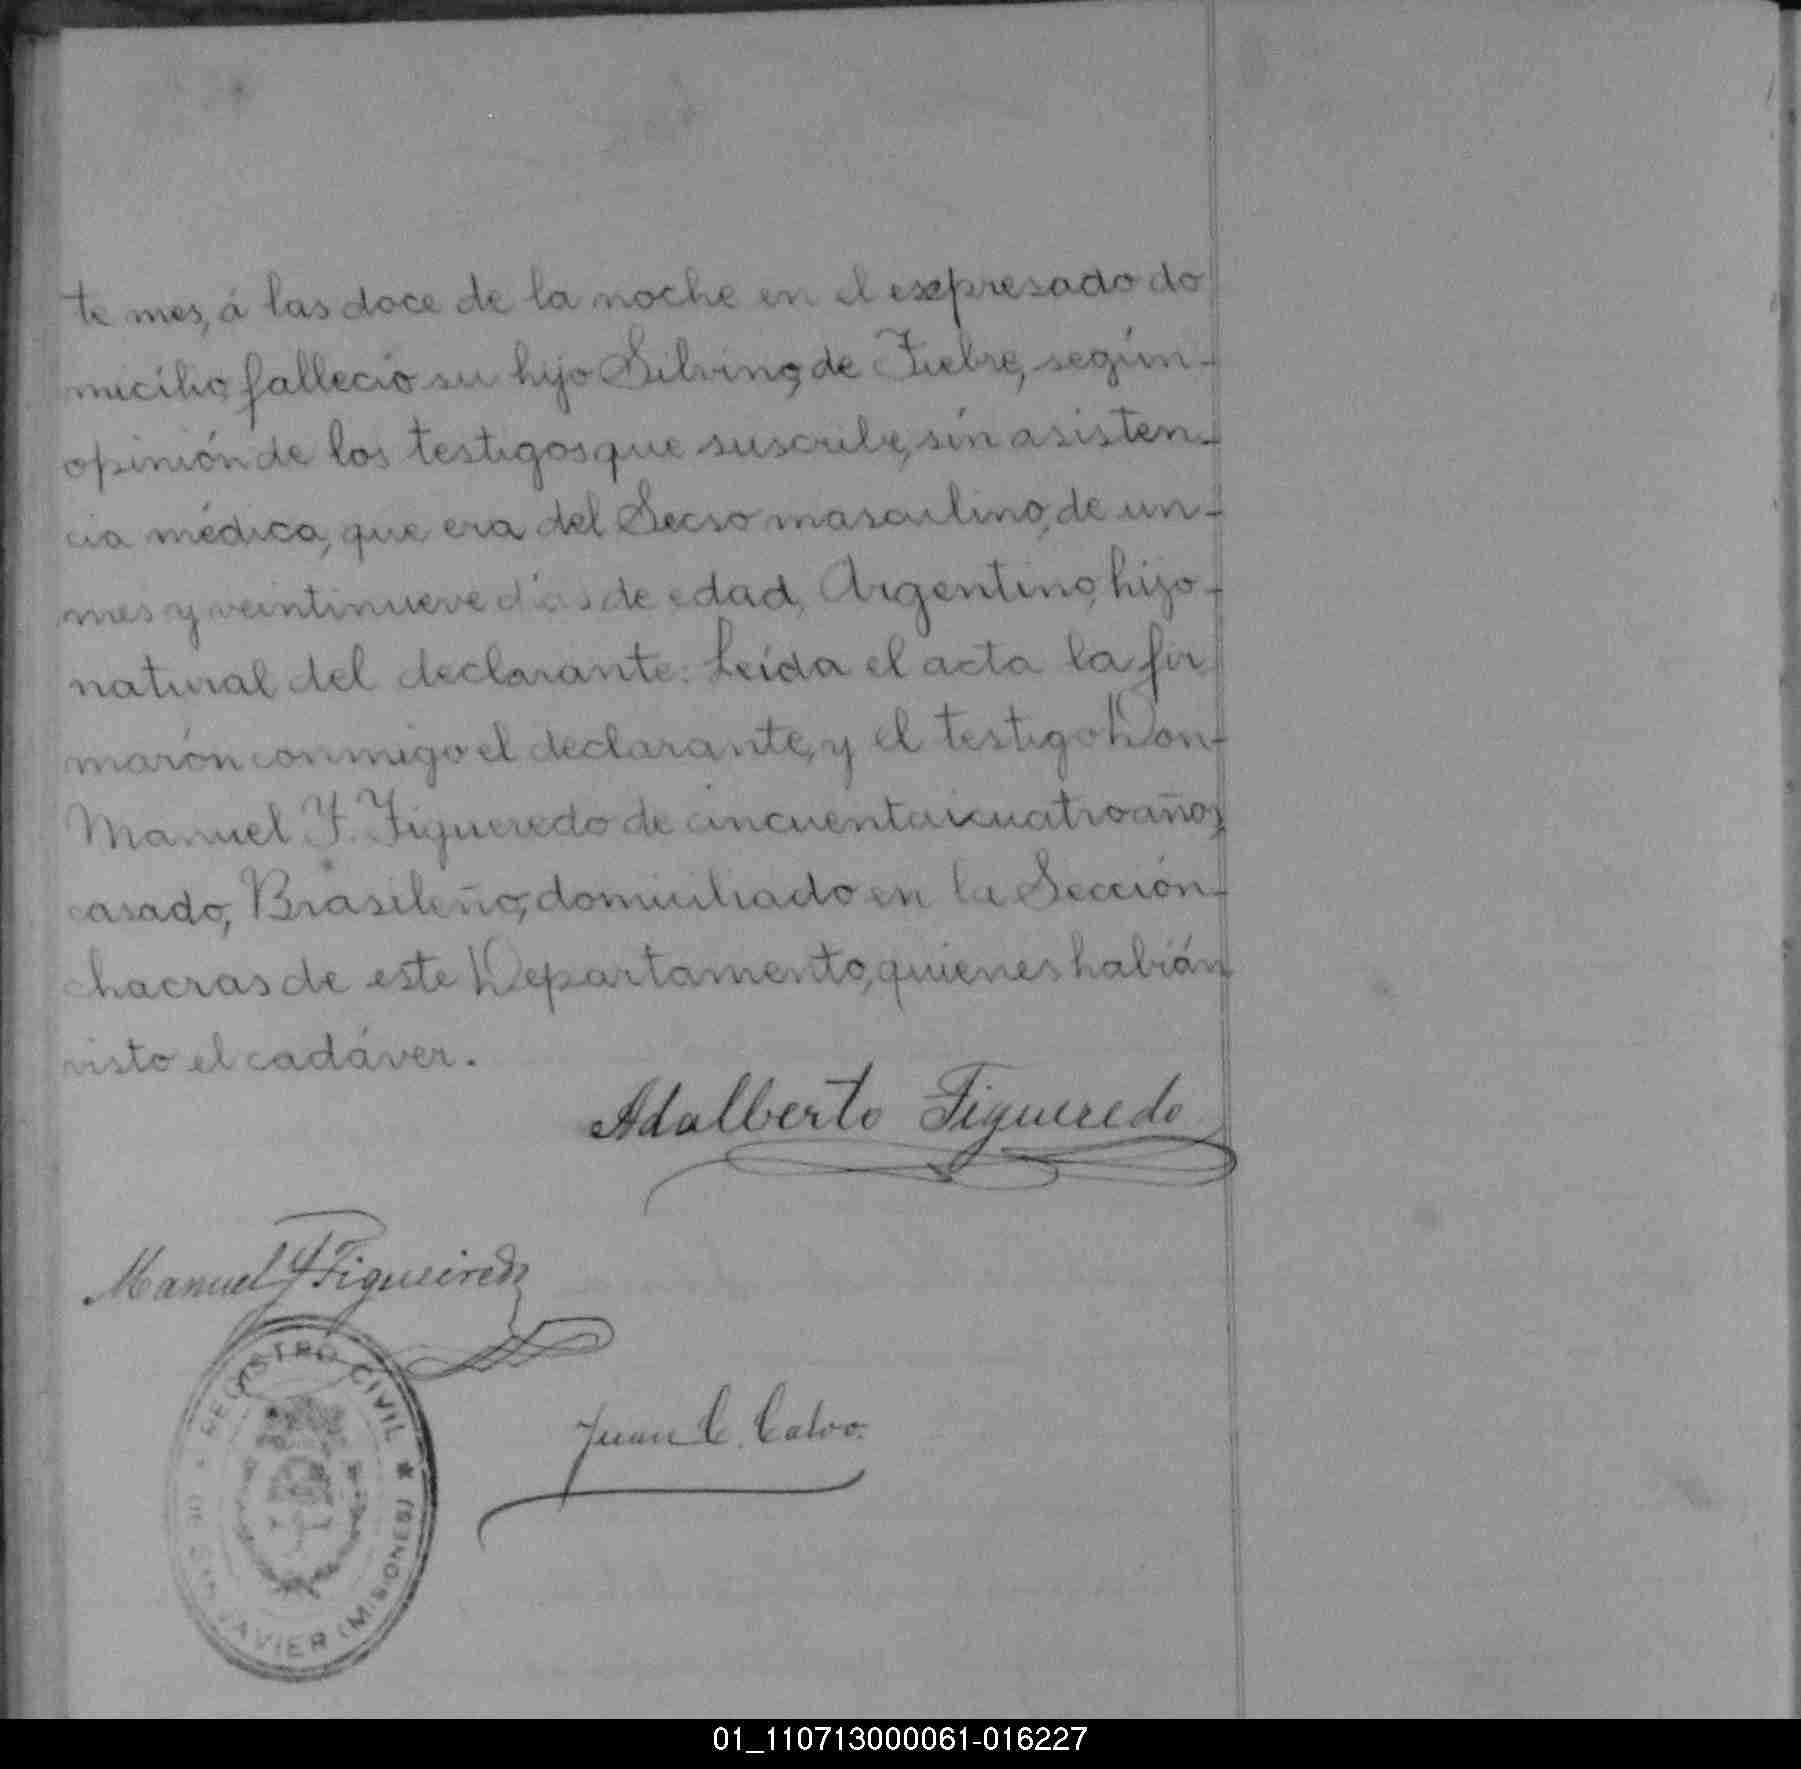 te mes, á las doce de la noche en el expresado do
micilio, falleció su hijo Silvino, de Fiebre, según-
opinión de los testigos que suscribe, sin asisten-
cia médica, que era del Secso masculino, de un-
mes y veintinueve días de edad, Argentino, hijo-
natural del declarante. Leída el acta la fir
marón conmigo el declarante, y el testigo Don-
Manuel Y. Figueredo de cincuentaicuatro años,
casado, Brasileño, domiciliado en la Sección-
chacras de este Departamento, quienes habián
visto el cadáver.
Adalberto Figueredo
Manuel Y Figueiredo
REGISTRO CIVIL ★
DE SAN JAVIER (MISIONES)
Juan C. Calvo.
01_110713000061-016227